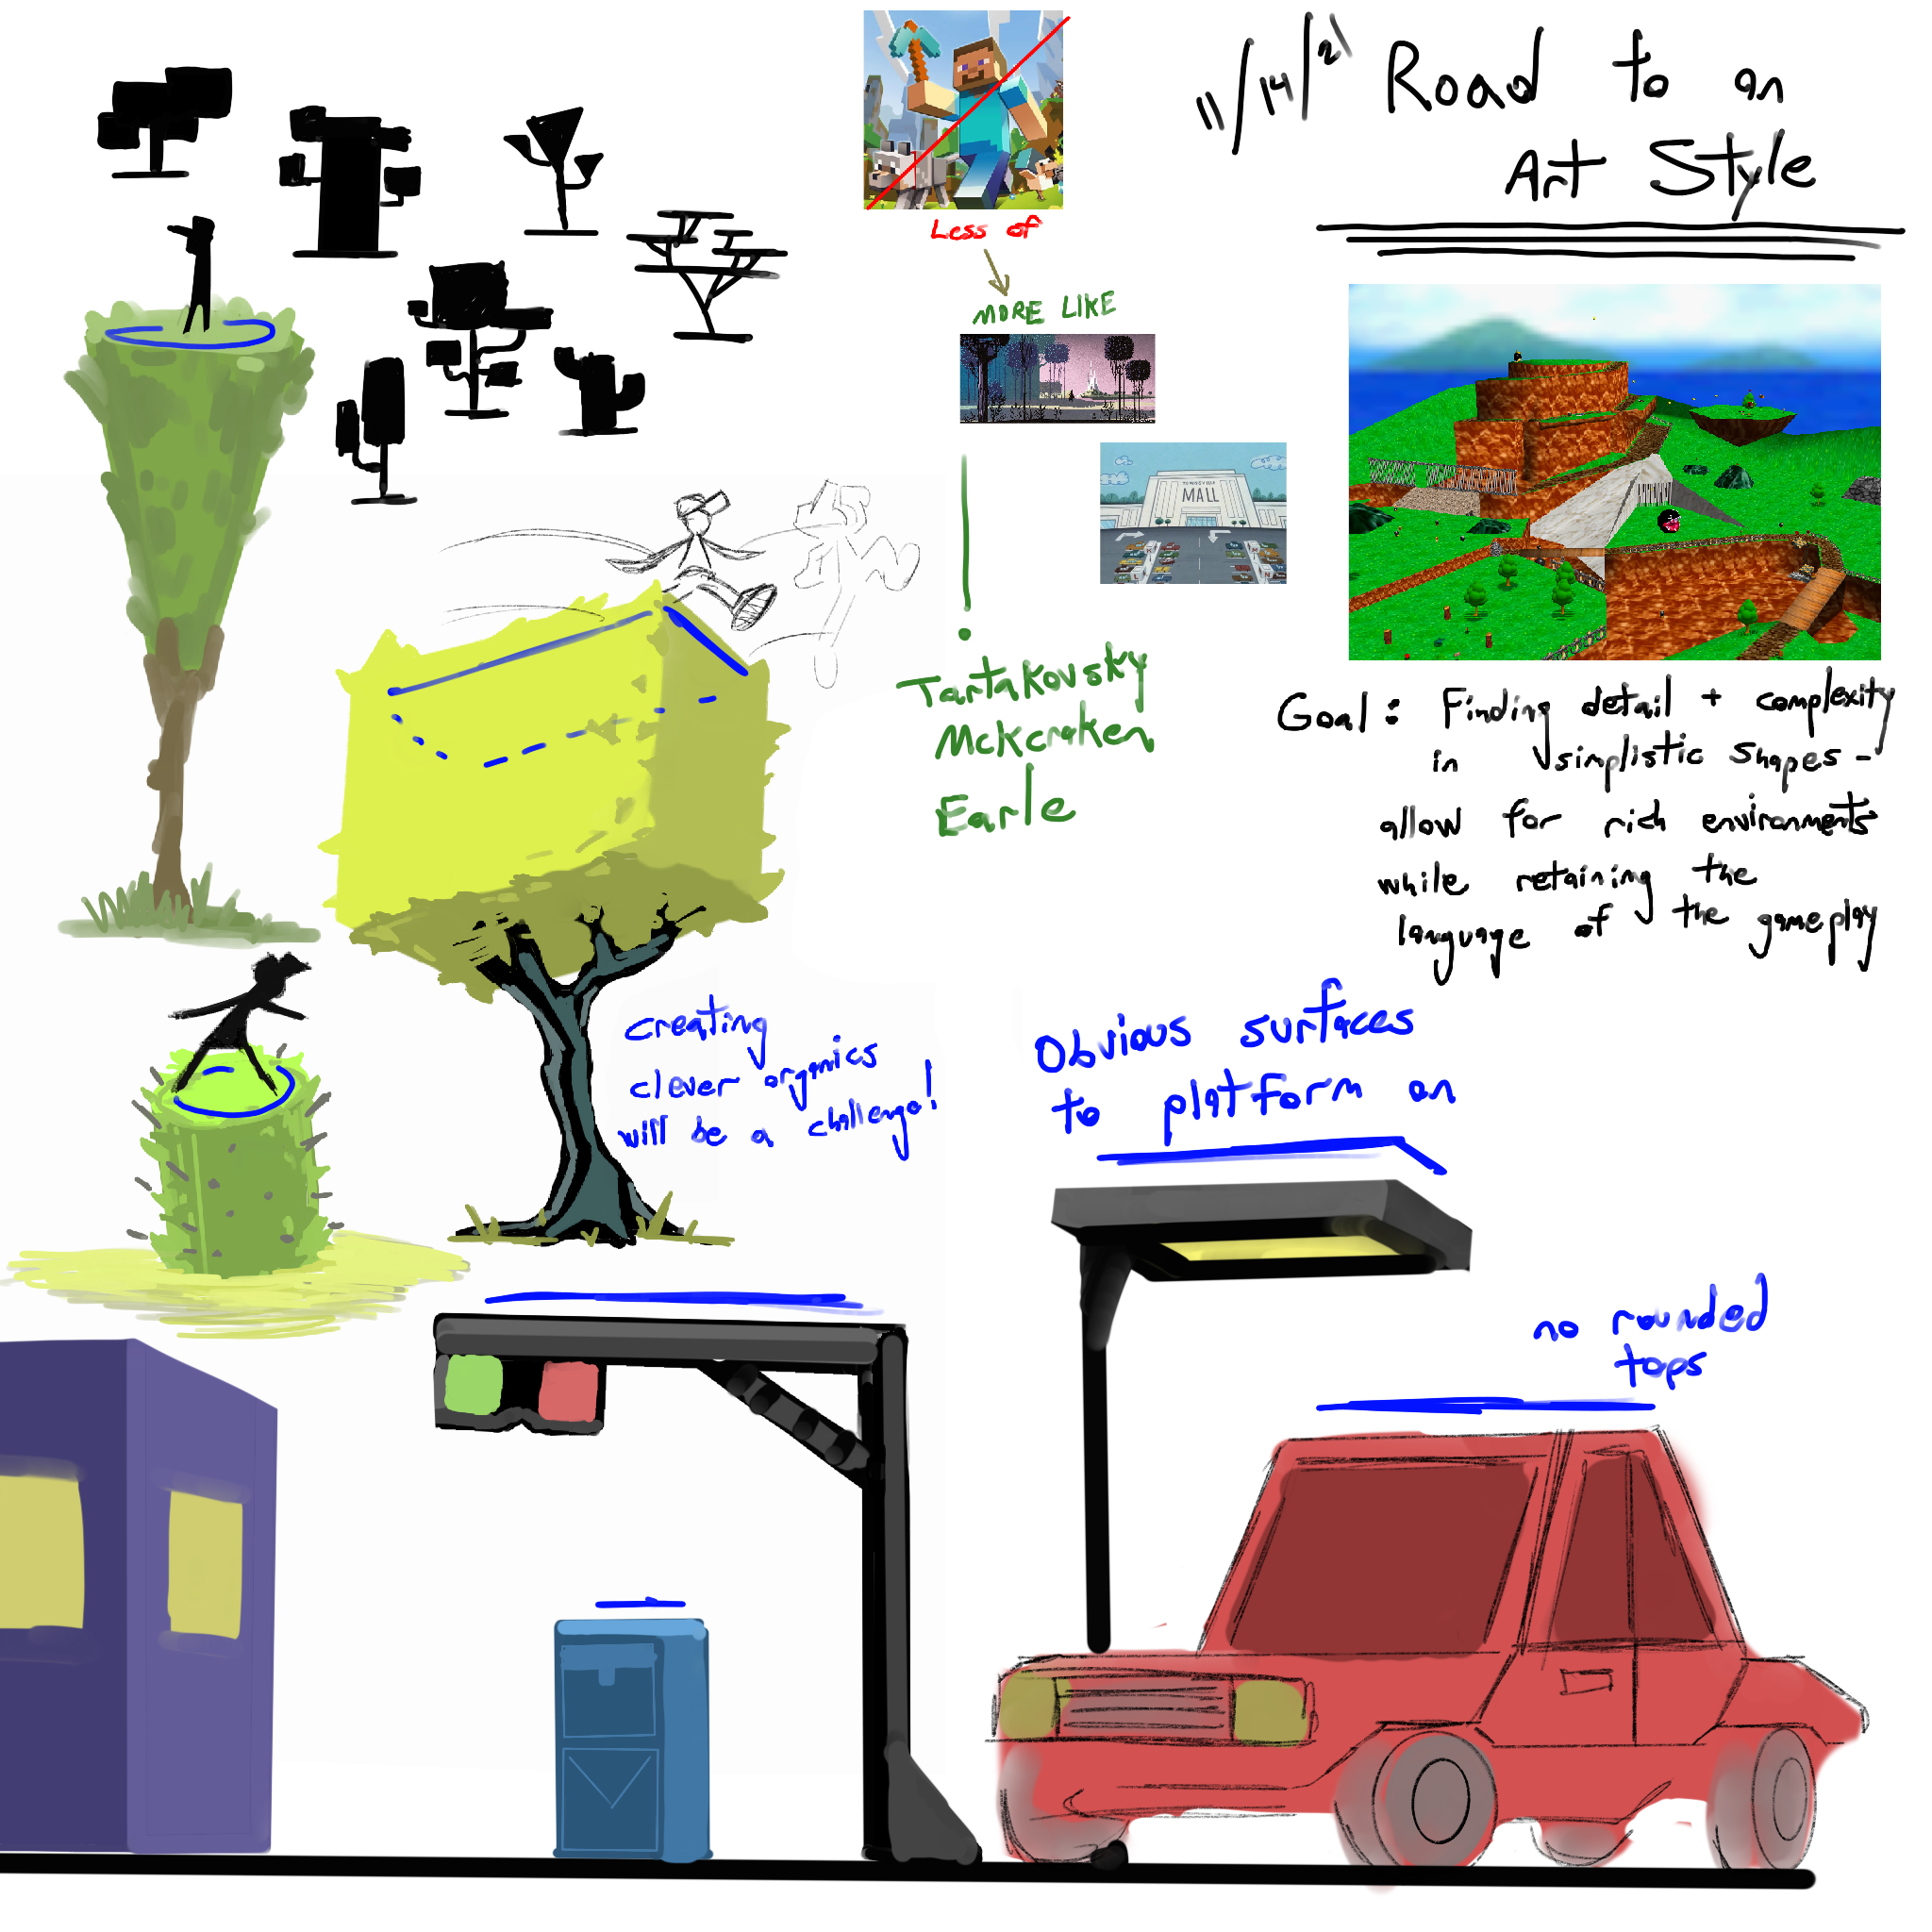 11/14/21 Road to an
Art Style
Less of
MORE LIKE
TOWNSVILLE
MALL
Tartakovsky
McKcraken
Earle
Goal: Finding detail + complexity
in simplistic shapes -
allow for rich environments
while retaining the
language of the gameplay
creating
clever organics
will be a challenge!
Obvious surfaces
to platform on
no rounded
tops